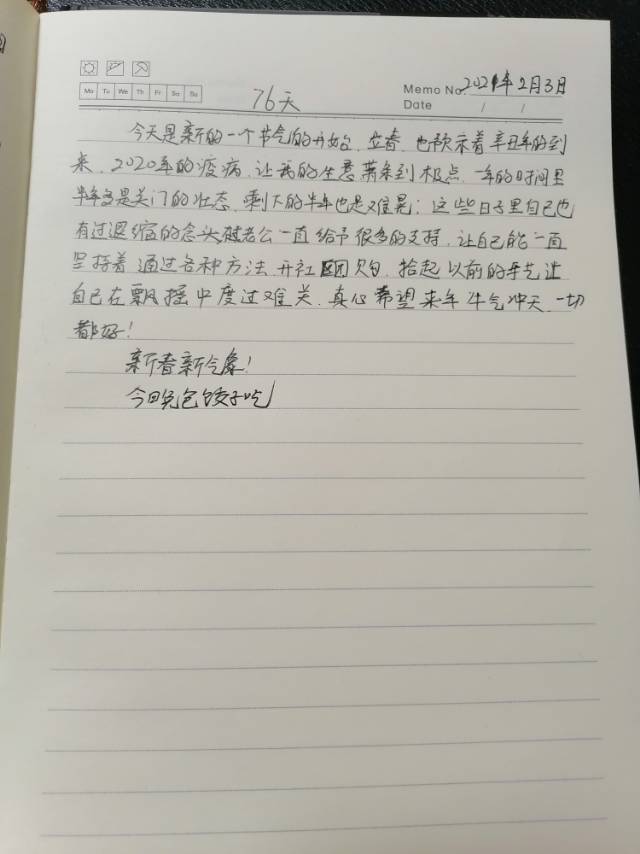 Mo Tu We Th Fr Sa Su
76天
Memo No. 2021年2月3日
Date / /
今天是新的一个节气的开始、立春、也预示着辛丑年的到
来、2020年的疫病、让我的生意萧条到极点、一年的时间里
半年多是关门的状态、剩下的半年也是难晃；这些日子里自己也
有过退缩的念头、老公一直给予很多的支持、让自己能一直
坚持着、通过各种方法、开社区团购、拾起以前的手艺让
自己在飘摇中度过难关、真心希望来年牛气冲天、一切
都好！
新春新气象！
今日包饺子吃